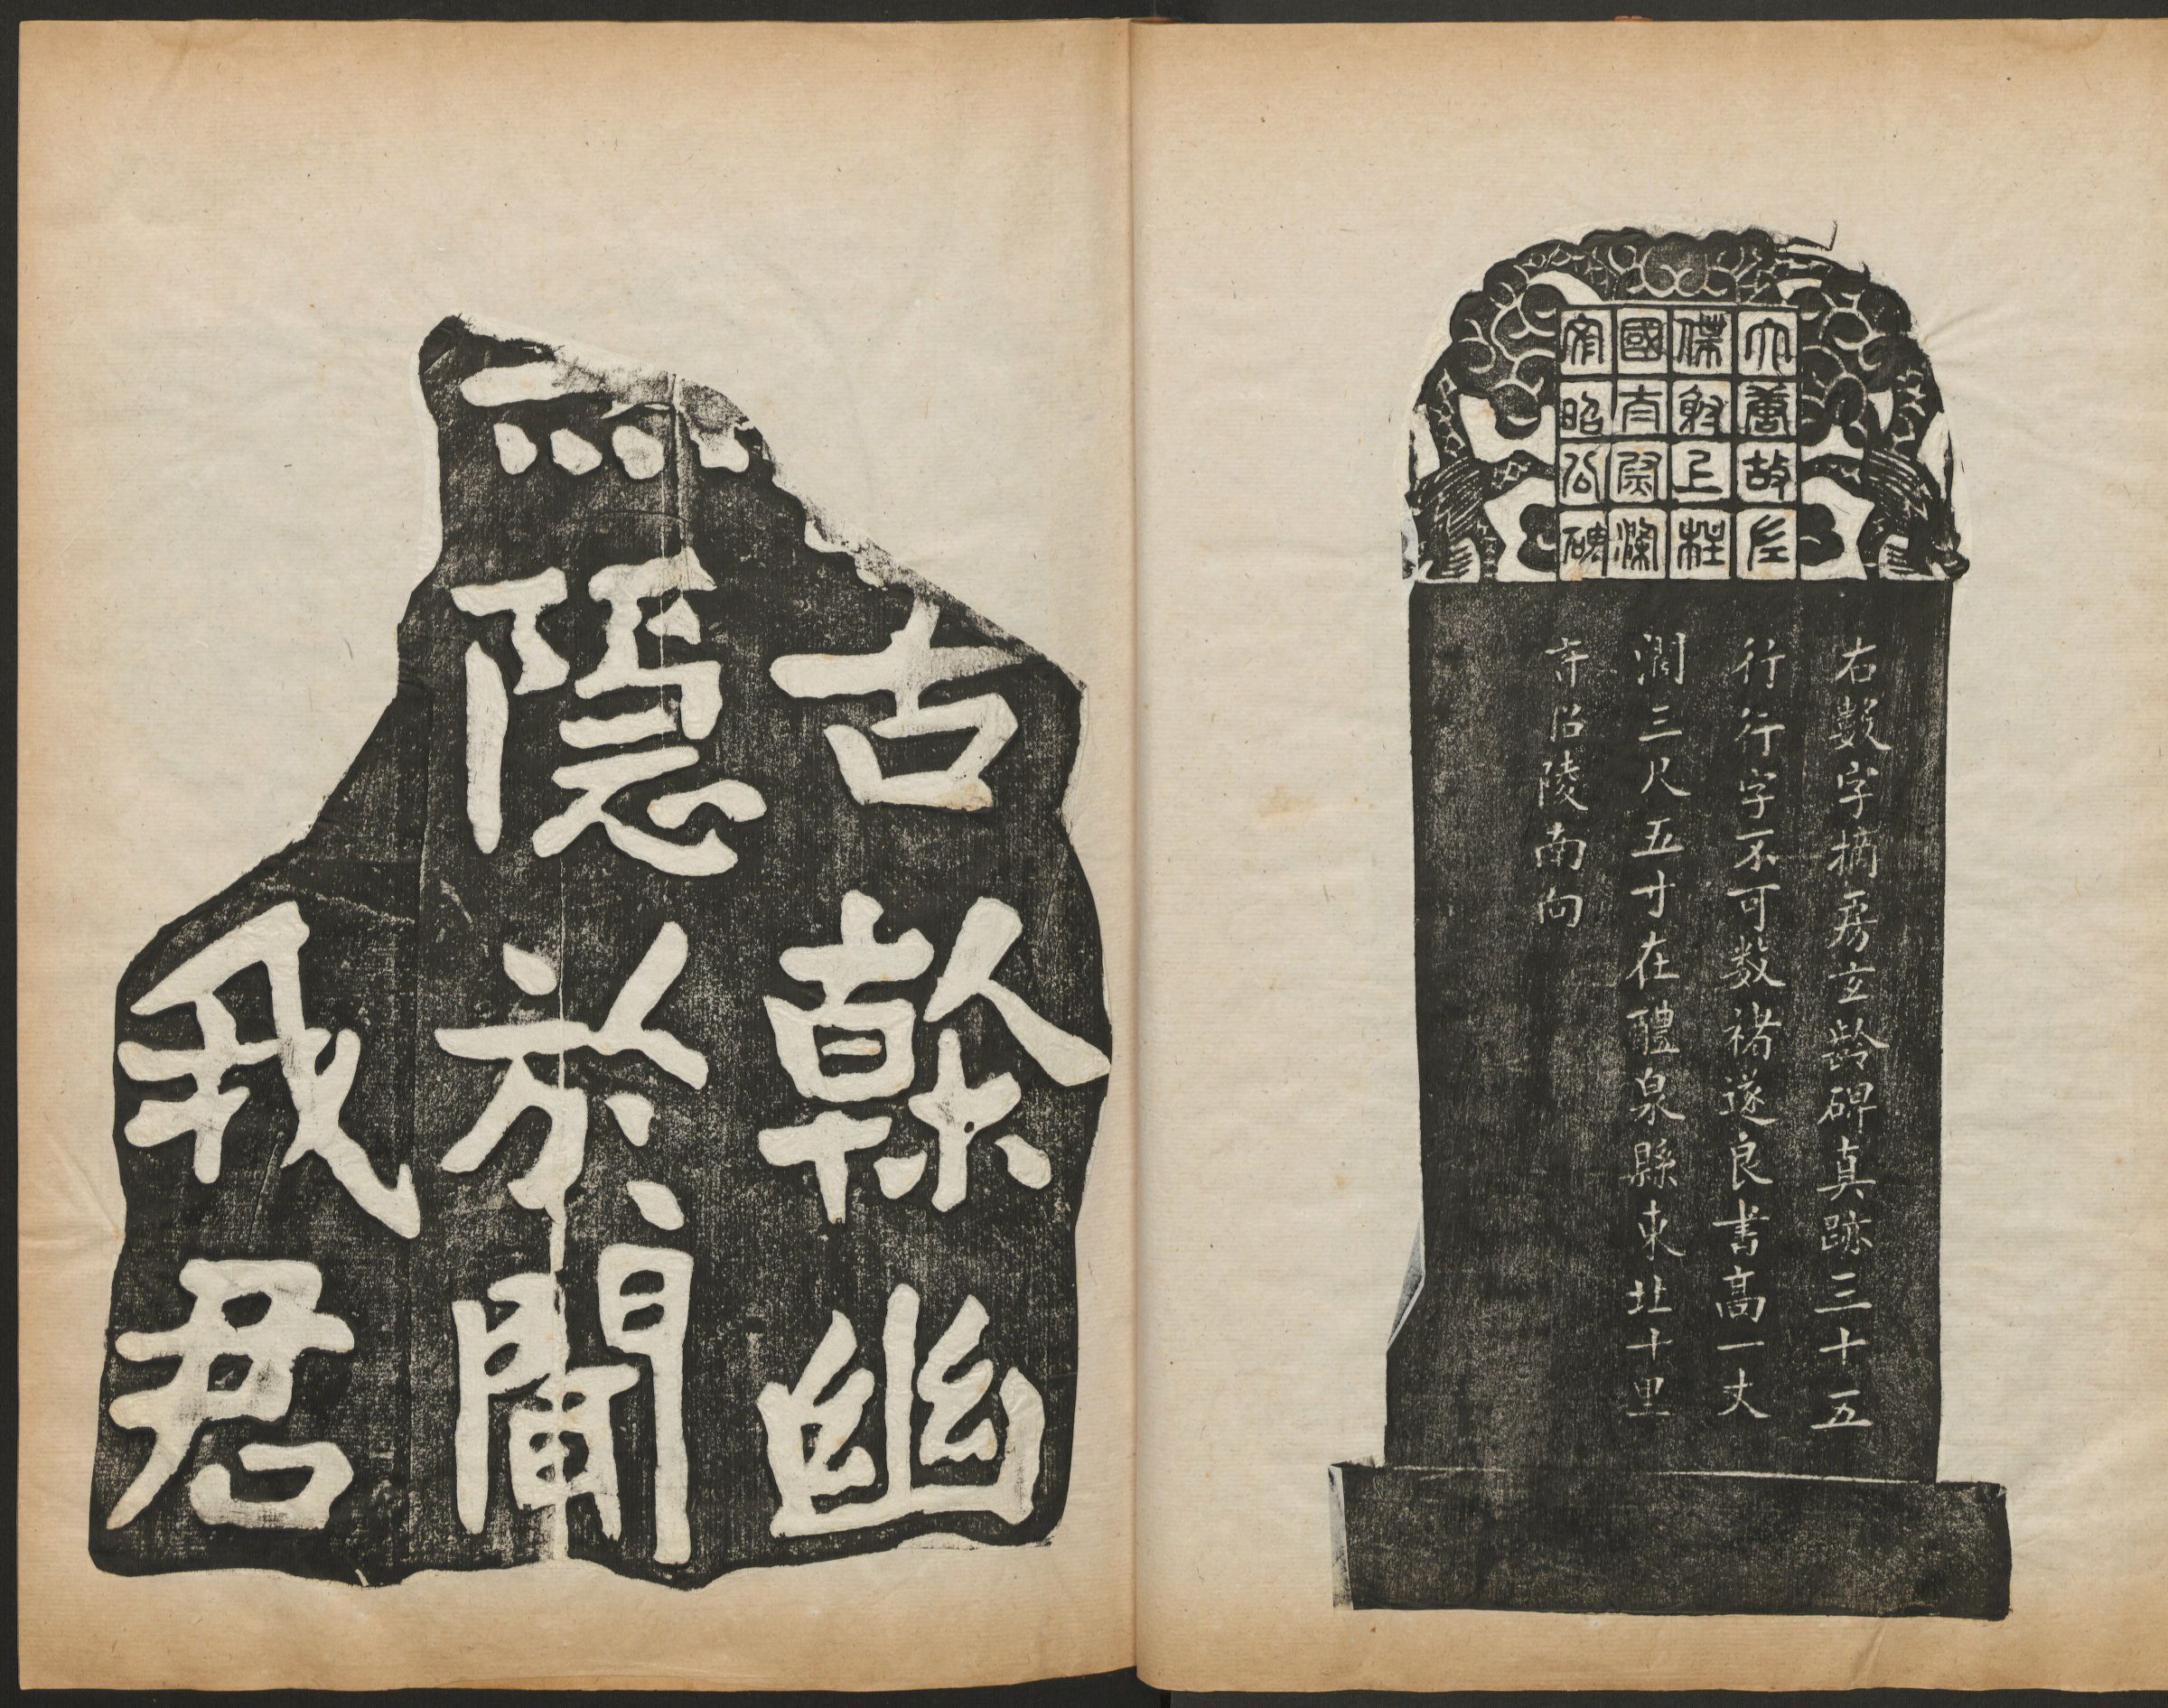 大唐故左
僕射上柱
國太尉梁
文昭公碑
右數字摘房玄齡碑真跡三十五
行行字不可数褚遂良書高一丈
濶三尺五寸在醴泉縣東北十里
寺召陵南向
古榦幽
隱於聞
我君